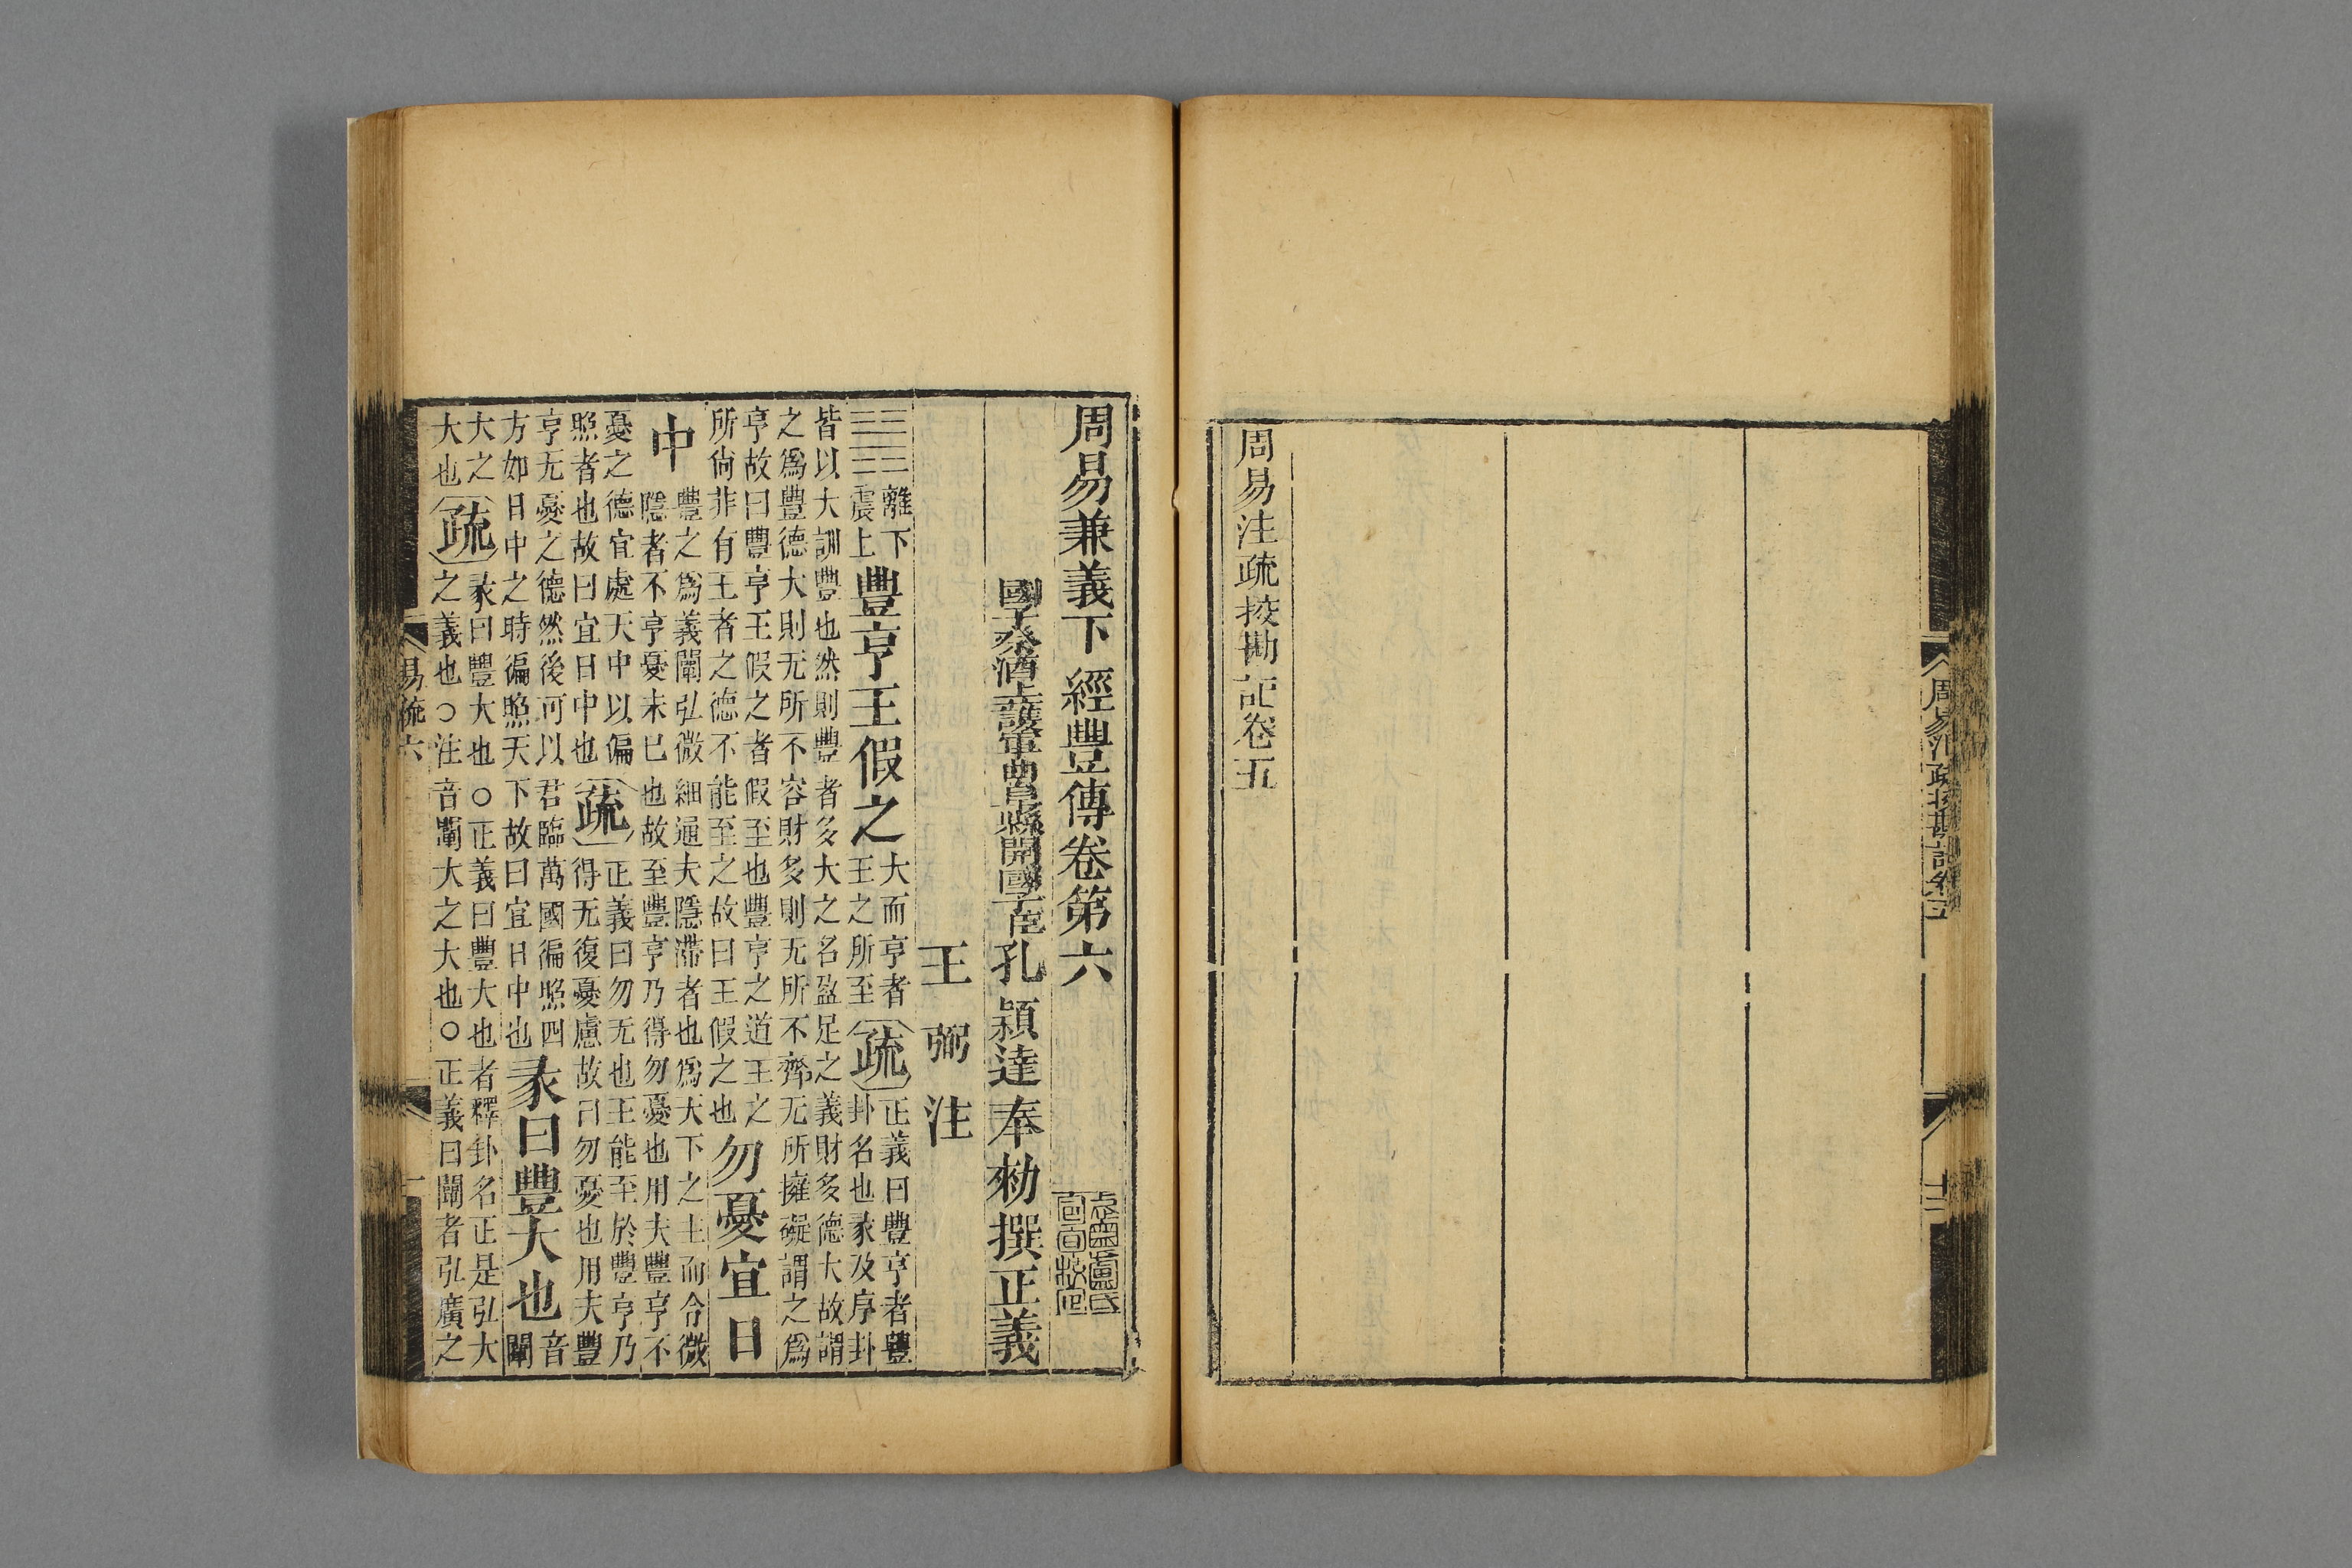 周易注疏挍勘記卷五
周易兼義下經豐傳卷第六
國子祭酒上護軍曲阜縣開國子臣孔穎達奉勑撰正義
王弼注
離下
震上
豐亨王假之
大而亨者
王之所至
疏
正義曰豐亨者豐
卦名也彖及序卦
皆以大訓豐也然則豐者多大之名盈足之義財多德大故謂
之爲豐德大則无所不容財多則无所不齊无所擁礙謂之爲
亨故曰豐亨王假之者假至也豐亨之道王之
所尙非有王者之德不能至之故曰王假之也
勿憂宜日
中
豐之爲義闡弘微細通夫隱滯者也爲天下之主而令微
隱者不亨憂未已也故至豐亨乃得勿憂也用夫豐亨不
憂之德宜處天中以偏
照者也故曰宜日中也
疏
正義曰勿无也王能至於豐亨乃
得无復憂慮故曰勿憂也用夫豐
亨无憂之德然後可以君臨萬國徧照四
方如日中之時徧照天下故曰宜日中也
彖曰豐大也
音
闡
大之
大也
疏
彖曰豐大也○正義曰豐大也者釋卦名正是弘大
之義也○注音闡大之大也○正義曰闡者弘廣之
易疏六
一
周易注疏挍勘記卷五
十二